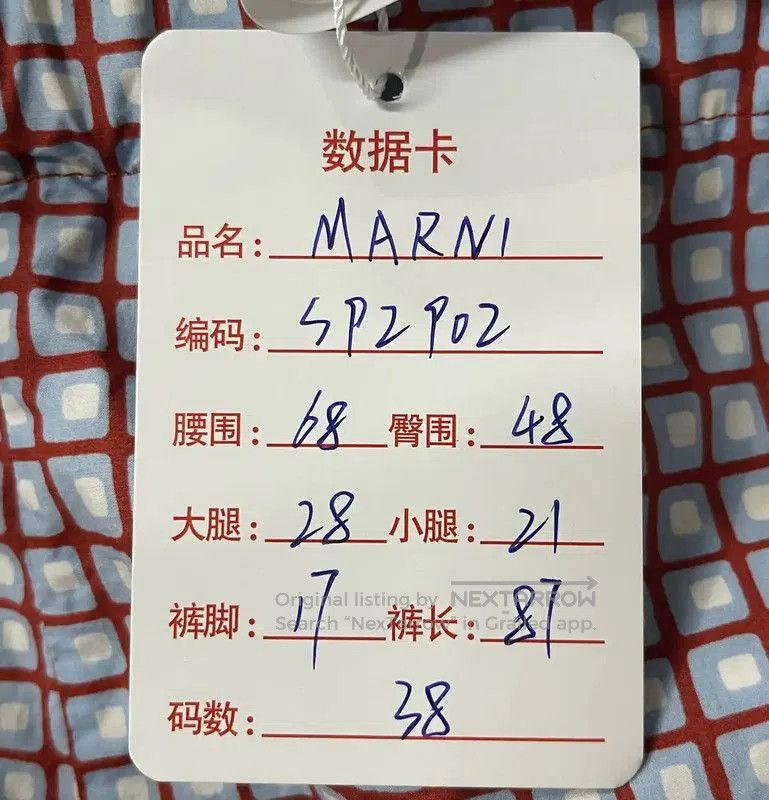 数据卡
品名: MARNI
编码: SP2P02
腰围: 68 臀围: 48
大腿: 28 小腿: 21
Original listing by NEXTARROW
裤脚: 17 裤长: 87
Search “NexTarrow” in Grailed app.
码数: 38